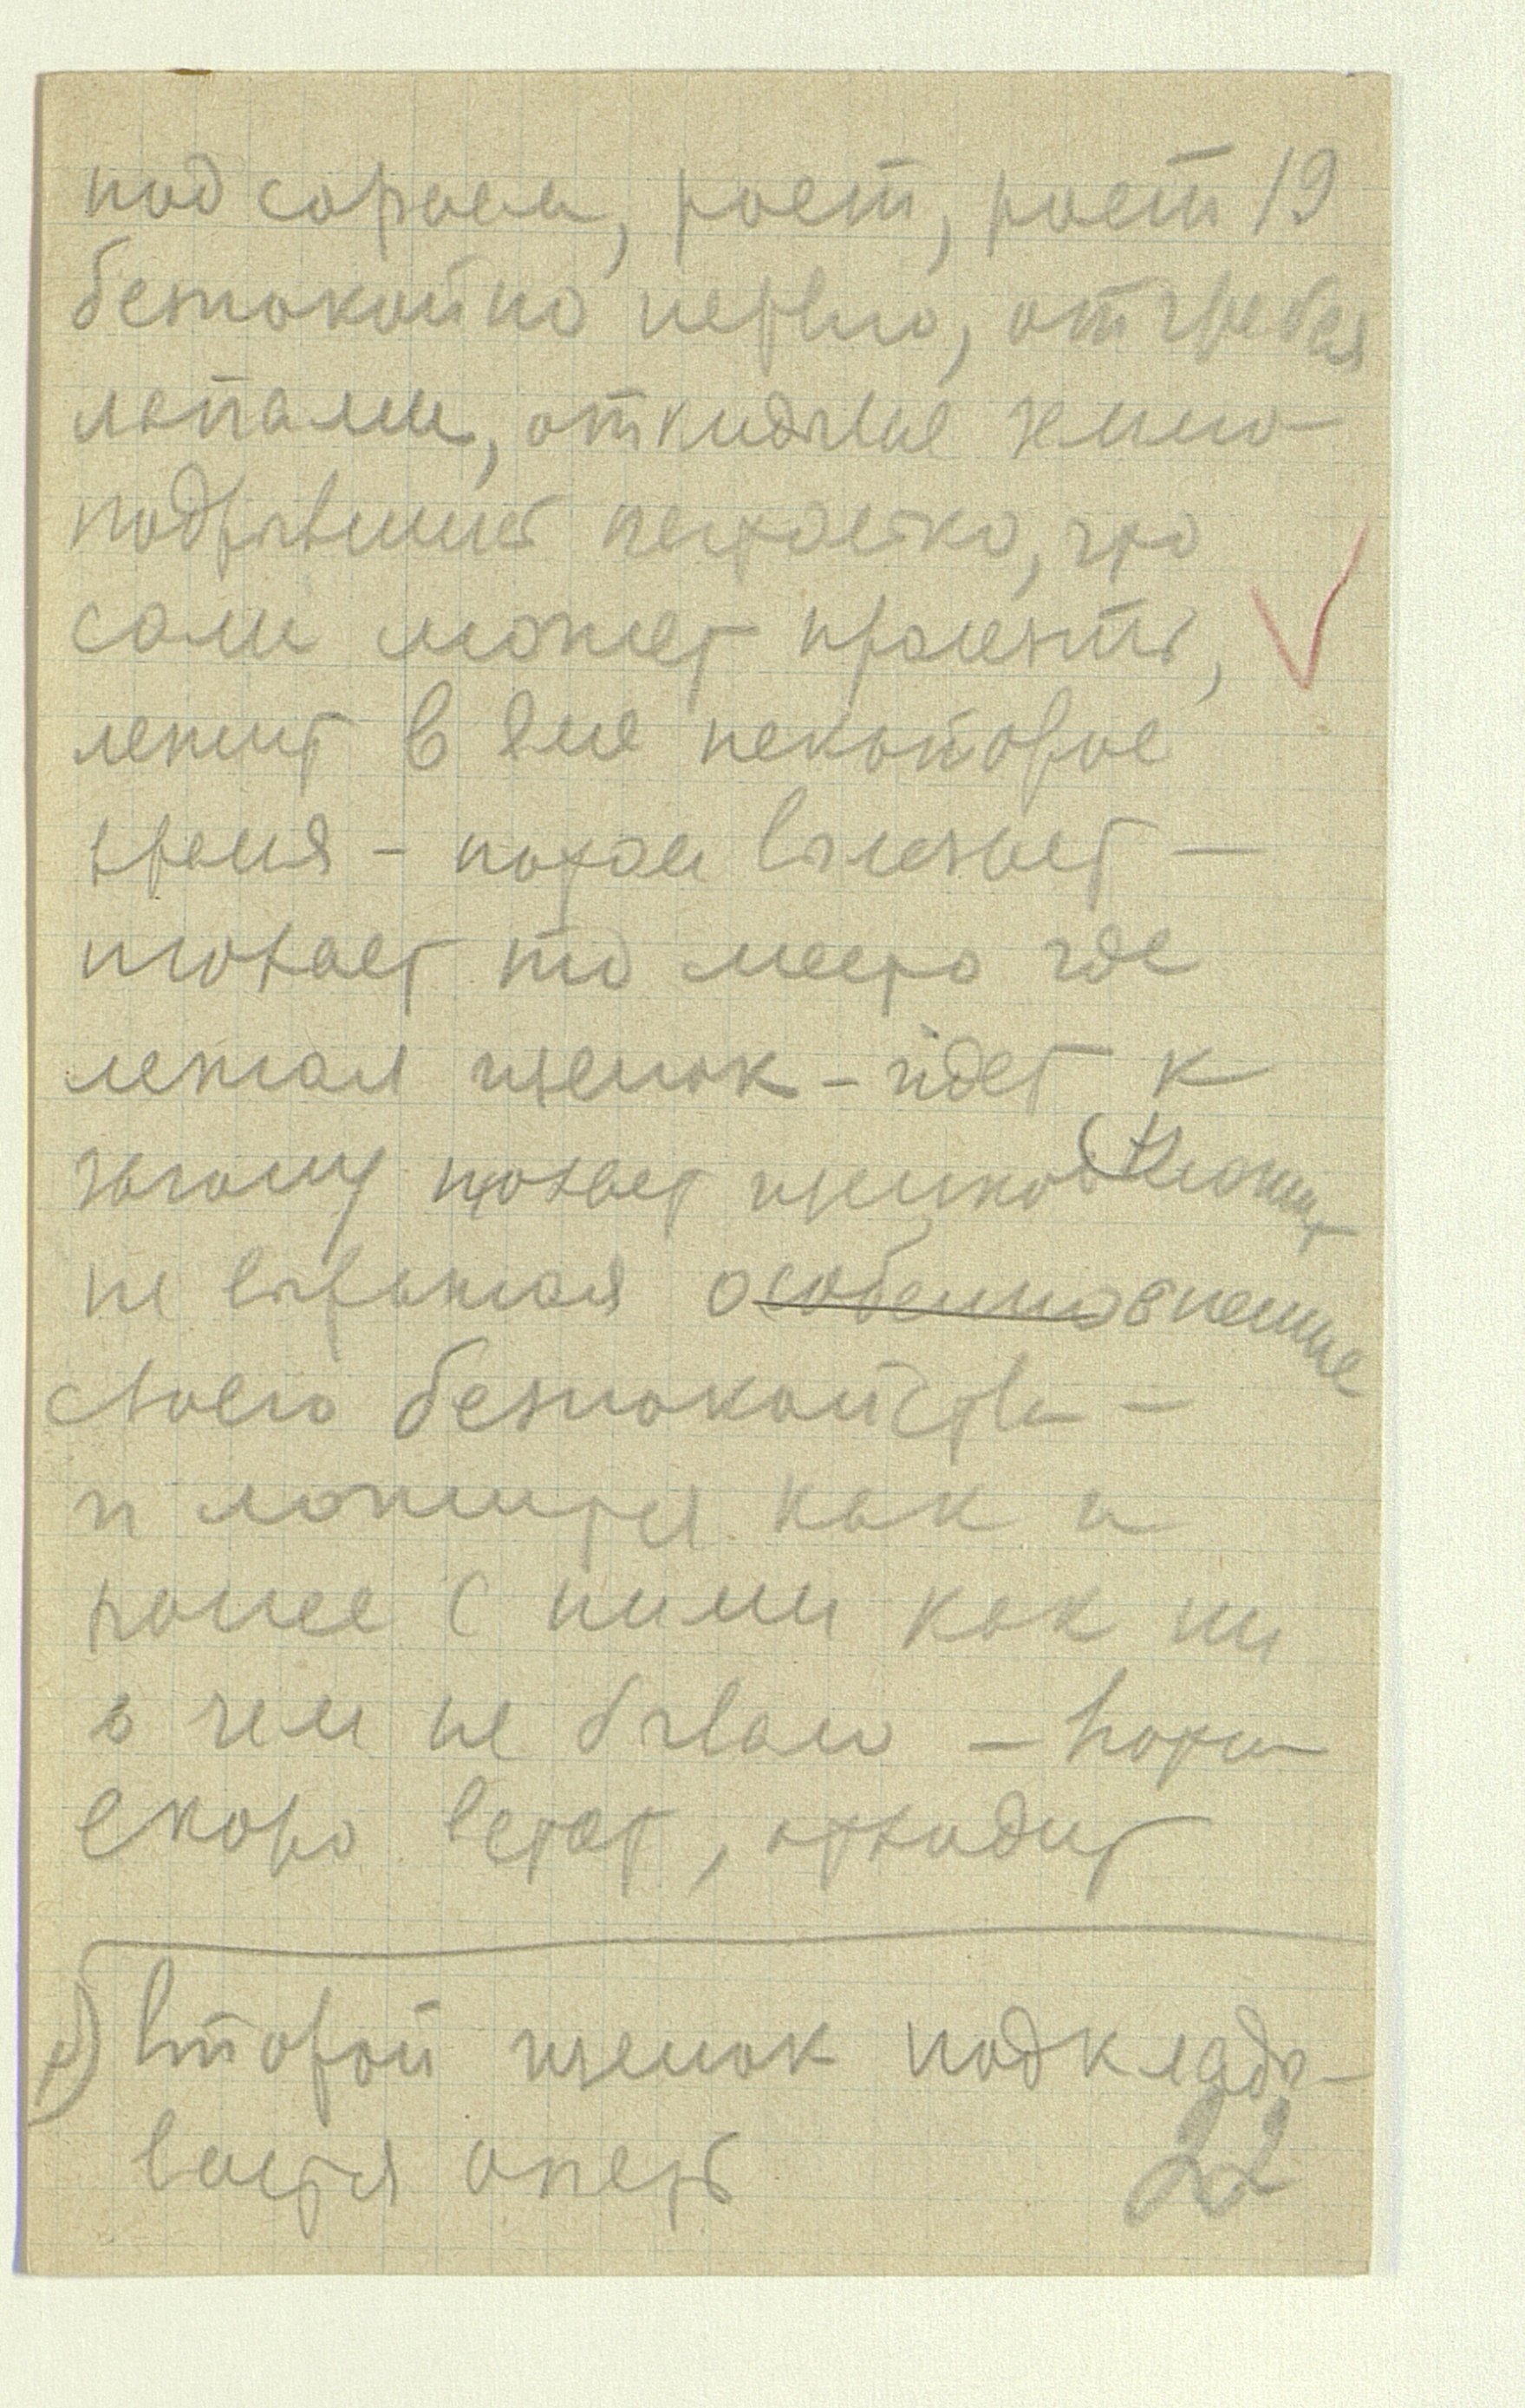 под сараем, роет, роет 19
безпокойно нервно, отгребая
лапами, откидывае землю
подрывшись настолько, что
сам может пролезть,
лежит в яме некоторое
время – потом вылезает –
нюхает то место где
лежал щенок – идет к
нюхает щенков
не выражая особенно внешне
своего безпокойства –
и ложится как и
ранее с ними как ни
в чем не бывало – 
скоро встает, отходит
Второй щенок подклады-
вается опять 22